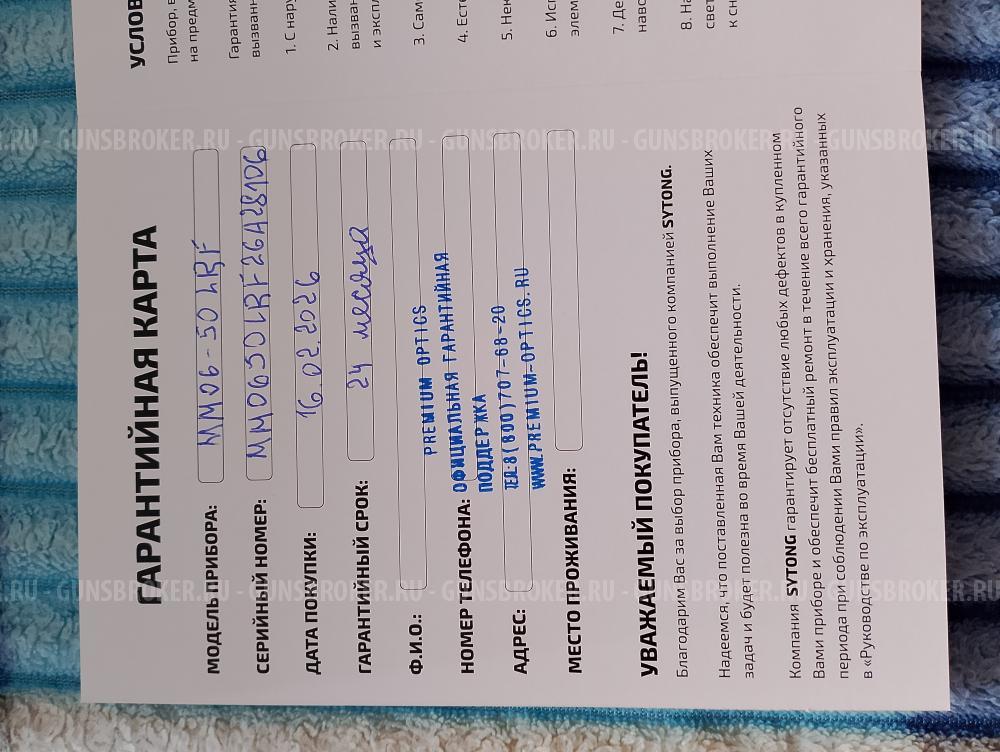 УСЛОВ
Прибор, в
на предм
Гарантия
вызванн
1. С нару
2. Нали
вызван
и экспл
3. Сам
4. Есте
5. Нек
6. Исп
элем
7. Де
наво
8. На
свет
к сн
ГАРАНТИЙНАЯ КАРТА
МОДЕЛЬ ПРИБОРА: MM06-50LRF
СЕРИЙНЫЙ НОМЕР: MM0650LRF26A28106
ДАТА ПОКУПКИ: 16.02.2026
ГАРАНТИЙНЫЙ СРОК: 24 месяца
Ф.И.О.:
PREMIUM OPTICS
НОМЕР ТЕЛЕФОНА: ОФИЦИАЛЬНАЯ ГАРАНТИЙНАЯ
ПОДДЕРЖКА
АДРЕС: ТЕЛ:8(800)707-68-20
WWW.PREMIUM-OPTICS.RU
МЕСТО ПРОЖИВАНИЯ:
УВАЖАЕМЫЙ ПОКУПАТЕЛЬ!
Благодарим Вас за выбор прибора, выпущенного компанией SYTONG.
Надеемся, что поставленная Вам техника обеспечит выполнение Ваших
задач и будет полезна во время Вашей деятельности.
Компания SYTONG гарантирует отсутствие любых дефектов в купленном
Вами приборе и обеспечит бесплатный ремонт в течение всего гарантийного
периода при соблюдении Вами правил эксплуатации и хранения, указанных
в «Руководстве по эксплуатации».
.RU - GUNSBROKER.RU - GUNSBROKER.RU - GUNSBROKER.RU - GUNSBROKER.RU - GUNSBROKER.RU
.RU - GUNSBROKER.RU - GUNSBROKER.RU - GUNSBROKER.RU - GUNSBROKER.RU - GUNSBROKER.RU